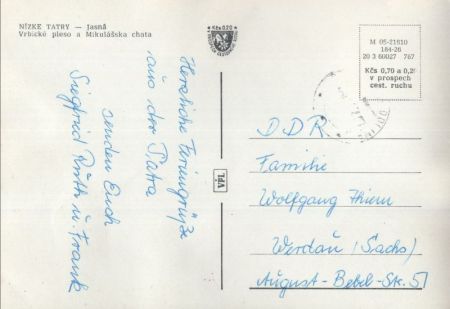 NÍZKE TATRY — Jasná
Vrbické pleso a Mikulášska chata
Kčs 0,20
M 05-21810
184-26
20 3 60027 767
Kčs 0,70 a 0,2
v prospech
cest. ruchu
Herzliche Feriengrüße
aus der Tatra
senden Euch
Siegfried Ruth u. Frank
VPL
DDR
Familie
Wolfgang Thiem
Werdau (Sachs)
August-Bebel-Str. 51